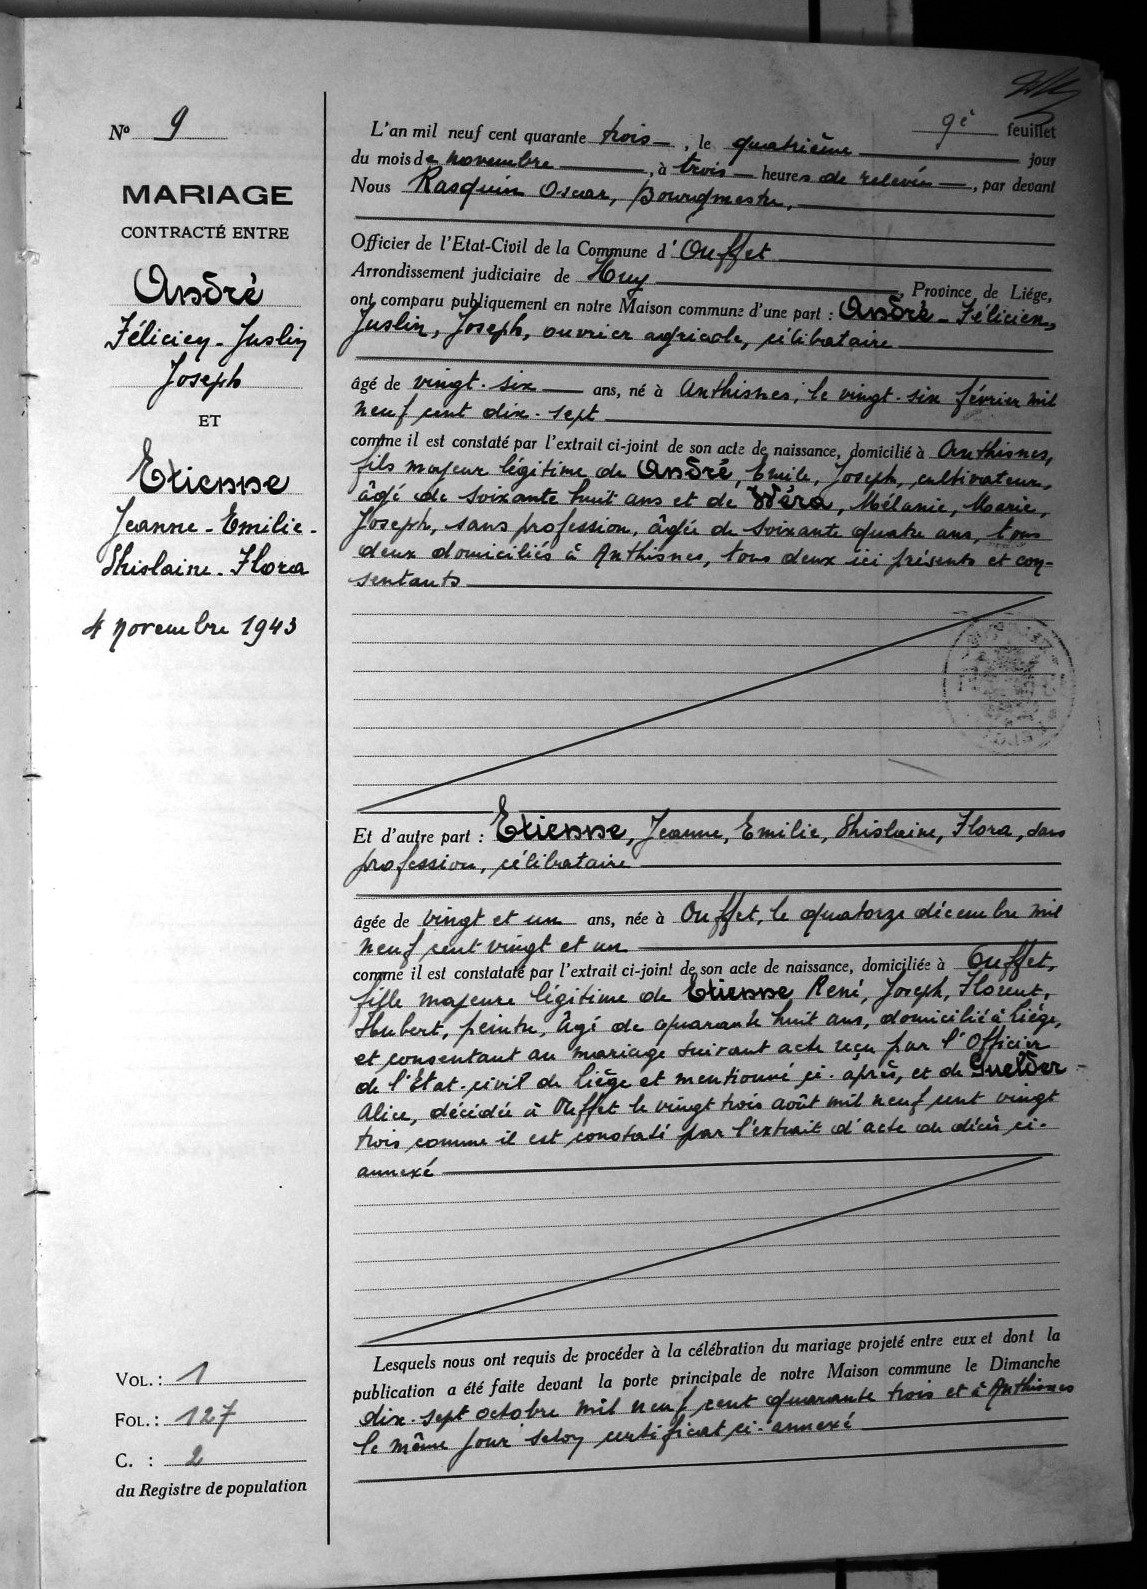 N° 9
MARIAGE
CONTRACTÉ ENTRE
André
Félicien - Juslin
Joseph
ET
Etienne
Jeanne - Emilie -
Ghislaine - Flora
4 novembre 1943
VOL. : 1
FOL. : 127
C. : 2
du Registre de population
9e feuillet
L'an mil neuf cent quarante trois, le quatrième jour
du mois de novembre, à trois heures de relevée, par devant
Nous Rasquin Oscar, Bourgmestre,
Officier de l'Etat-Civil de la Commune d'Ouffet
Arrondissement judiciaire de Huy, Province de Liége,
ont comparu publiquement en notre Maison commune d'une part : André - Félicien,
Juslin, Joseph, ouvrier agricole, célibataire
âgé de vingt-six ans, né à Anthisnes, le vingt-six février mil
neuf cent dix-sept
comme il est constaté par l'extrait ci-joint de son acte de naissance, domicilié à Anthisnes,
fils majeur légitime de André, Emile, Joseph, cultivateur,
âgé de soixante huit ans et de Wéra, Mélanie, Marie,
Joseph, sans profession, âgée de soixante quatre ans, tous
deux domiciliés à Anthisnes, tous deux ici présents et con-
sentants
Et d'autre part : Etienne, Jeanne, Emilie, Ghislaine, Flora, sans
profession, célibataire
âgée de vingt et un ans, née à Ouffet, le quatorze décembre mil
neuf cent vingt et un
comme il est constataté par l'extrait ci-joint de son acte de naissance, domiciliée à Ouffet,
fille majeure légitime de Etienne René, Joseph, Florent,
Hubert, peintre, âgé de quarante huit ans, domicilié à Liége,
et consentant au mariage suivant acte reçu par l'Officier
de l'Etat-civil de Liége et mentionné ci-après, et de Guelder
Alice, décédée à Ouffet le vingt trois août mil neuf cent vingt
trois comme il est constaté par l'extrait d'acte de décès ci-
annexé
Lesquels nous ont requis de procéder à la célébration du mariage projeté entre eux et dont la
publication a été faite devant la porte principale de notre Maison commune le Dimanche
dix-sept octobre mil neuf cent quarante trois et à Anthisnes
le même jour selon certificat ci-annexé